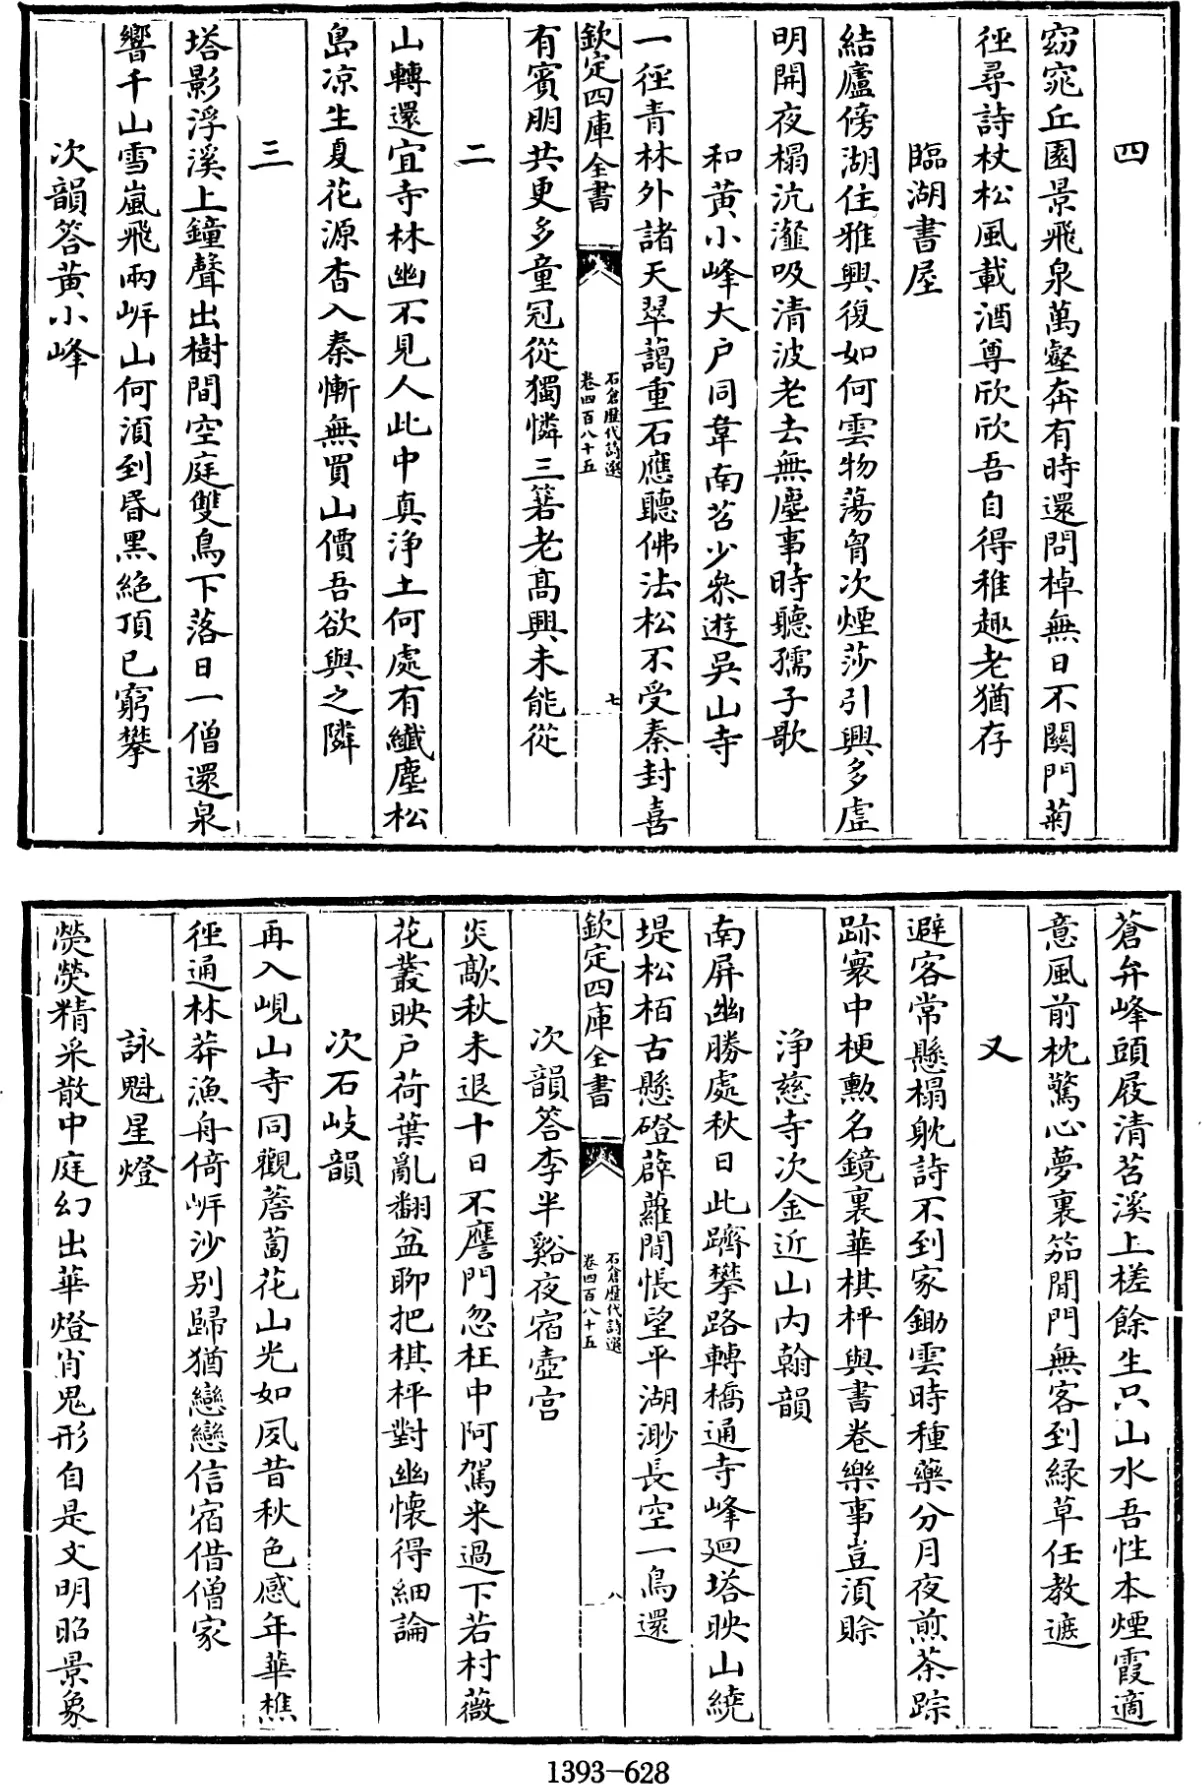 四
窈窕丘園景飛泉萬壑奔有時還問棹無日不關門菊
徑尋詩杖松風載酒尊欣欣吾自得稚趣老猶存
臨湖書屋
結廬傍湖住雅興復如何雲物蕩胷次煙莎引興多虛
明開夜榻沆瀣吸清波老去無塵事時聽孺子歌
和黃小峰大户同韋南苕少叅遊吳山寺
一徑青林外諸天翠藹重石應聽佛法松不受秦封喜
欽定四庫全書
石倉歷代詩選
卷四百八十五
七
有賓朋共更多童冠從獨憐三箬老髙興未能從
二
山轉還宜寺林幽不見人此中真淨土何處有纎塵松
島凉生夏花源杳入秦慚無買山價吾欲與之隣
三
塔影浮溪上鐘聲出樹間空庭雙鳥下落日一僧還泉
響千山雪嵐飛兩岍山何湏到昏黑絶頂已窮攀
次韻答黃小峰
蒼弁峰頭屐清苕溪上槎餘生只山水吾性本煙霞適
意風前枕驚心夢裏笳閒門無客到緑草任教遮
又
避客常懸榻躭詩不到家鋤雲時種藥分月夜煎茶踪
跡寰中梗勲名鏡裏華棋枰與書卷樂事豈湏賒
淨慈寺次金近山内翰韻
南屏幽勝處秋日此躋攀路轉橋通寺峰廻塔映山繞
堤松栢古懸磴薜蘿閒悵望平湖渺長空一鳥還
欽定四庫全書
石倉歷代詩選
卷四百八十五
八
次韻答李半谿夜宿壺宫
炎歊秋未退十日不麐門忽枉中阿駕来過下若村薇
花叢映户荷葉亂翻盆聊把棋枰對幽懷得細論
次石岐韻
再入峴山寺同觀薝蔔花山光如夙昔秋色感年華樵
徑通林莽漁舟倚岍沙别歸猶戀戀信宿借僧家
詠魁星燈
熒熒精采散中庭幻出華燈肖鬼形自是文明昭景象
1393-628